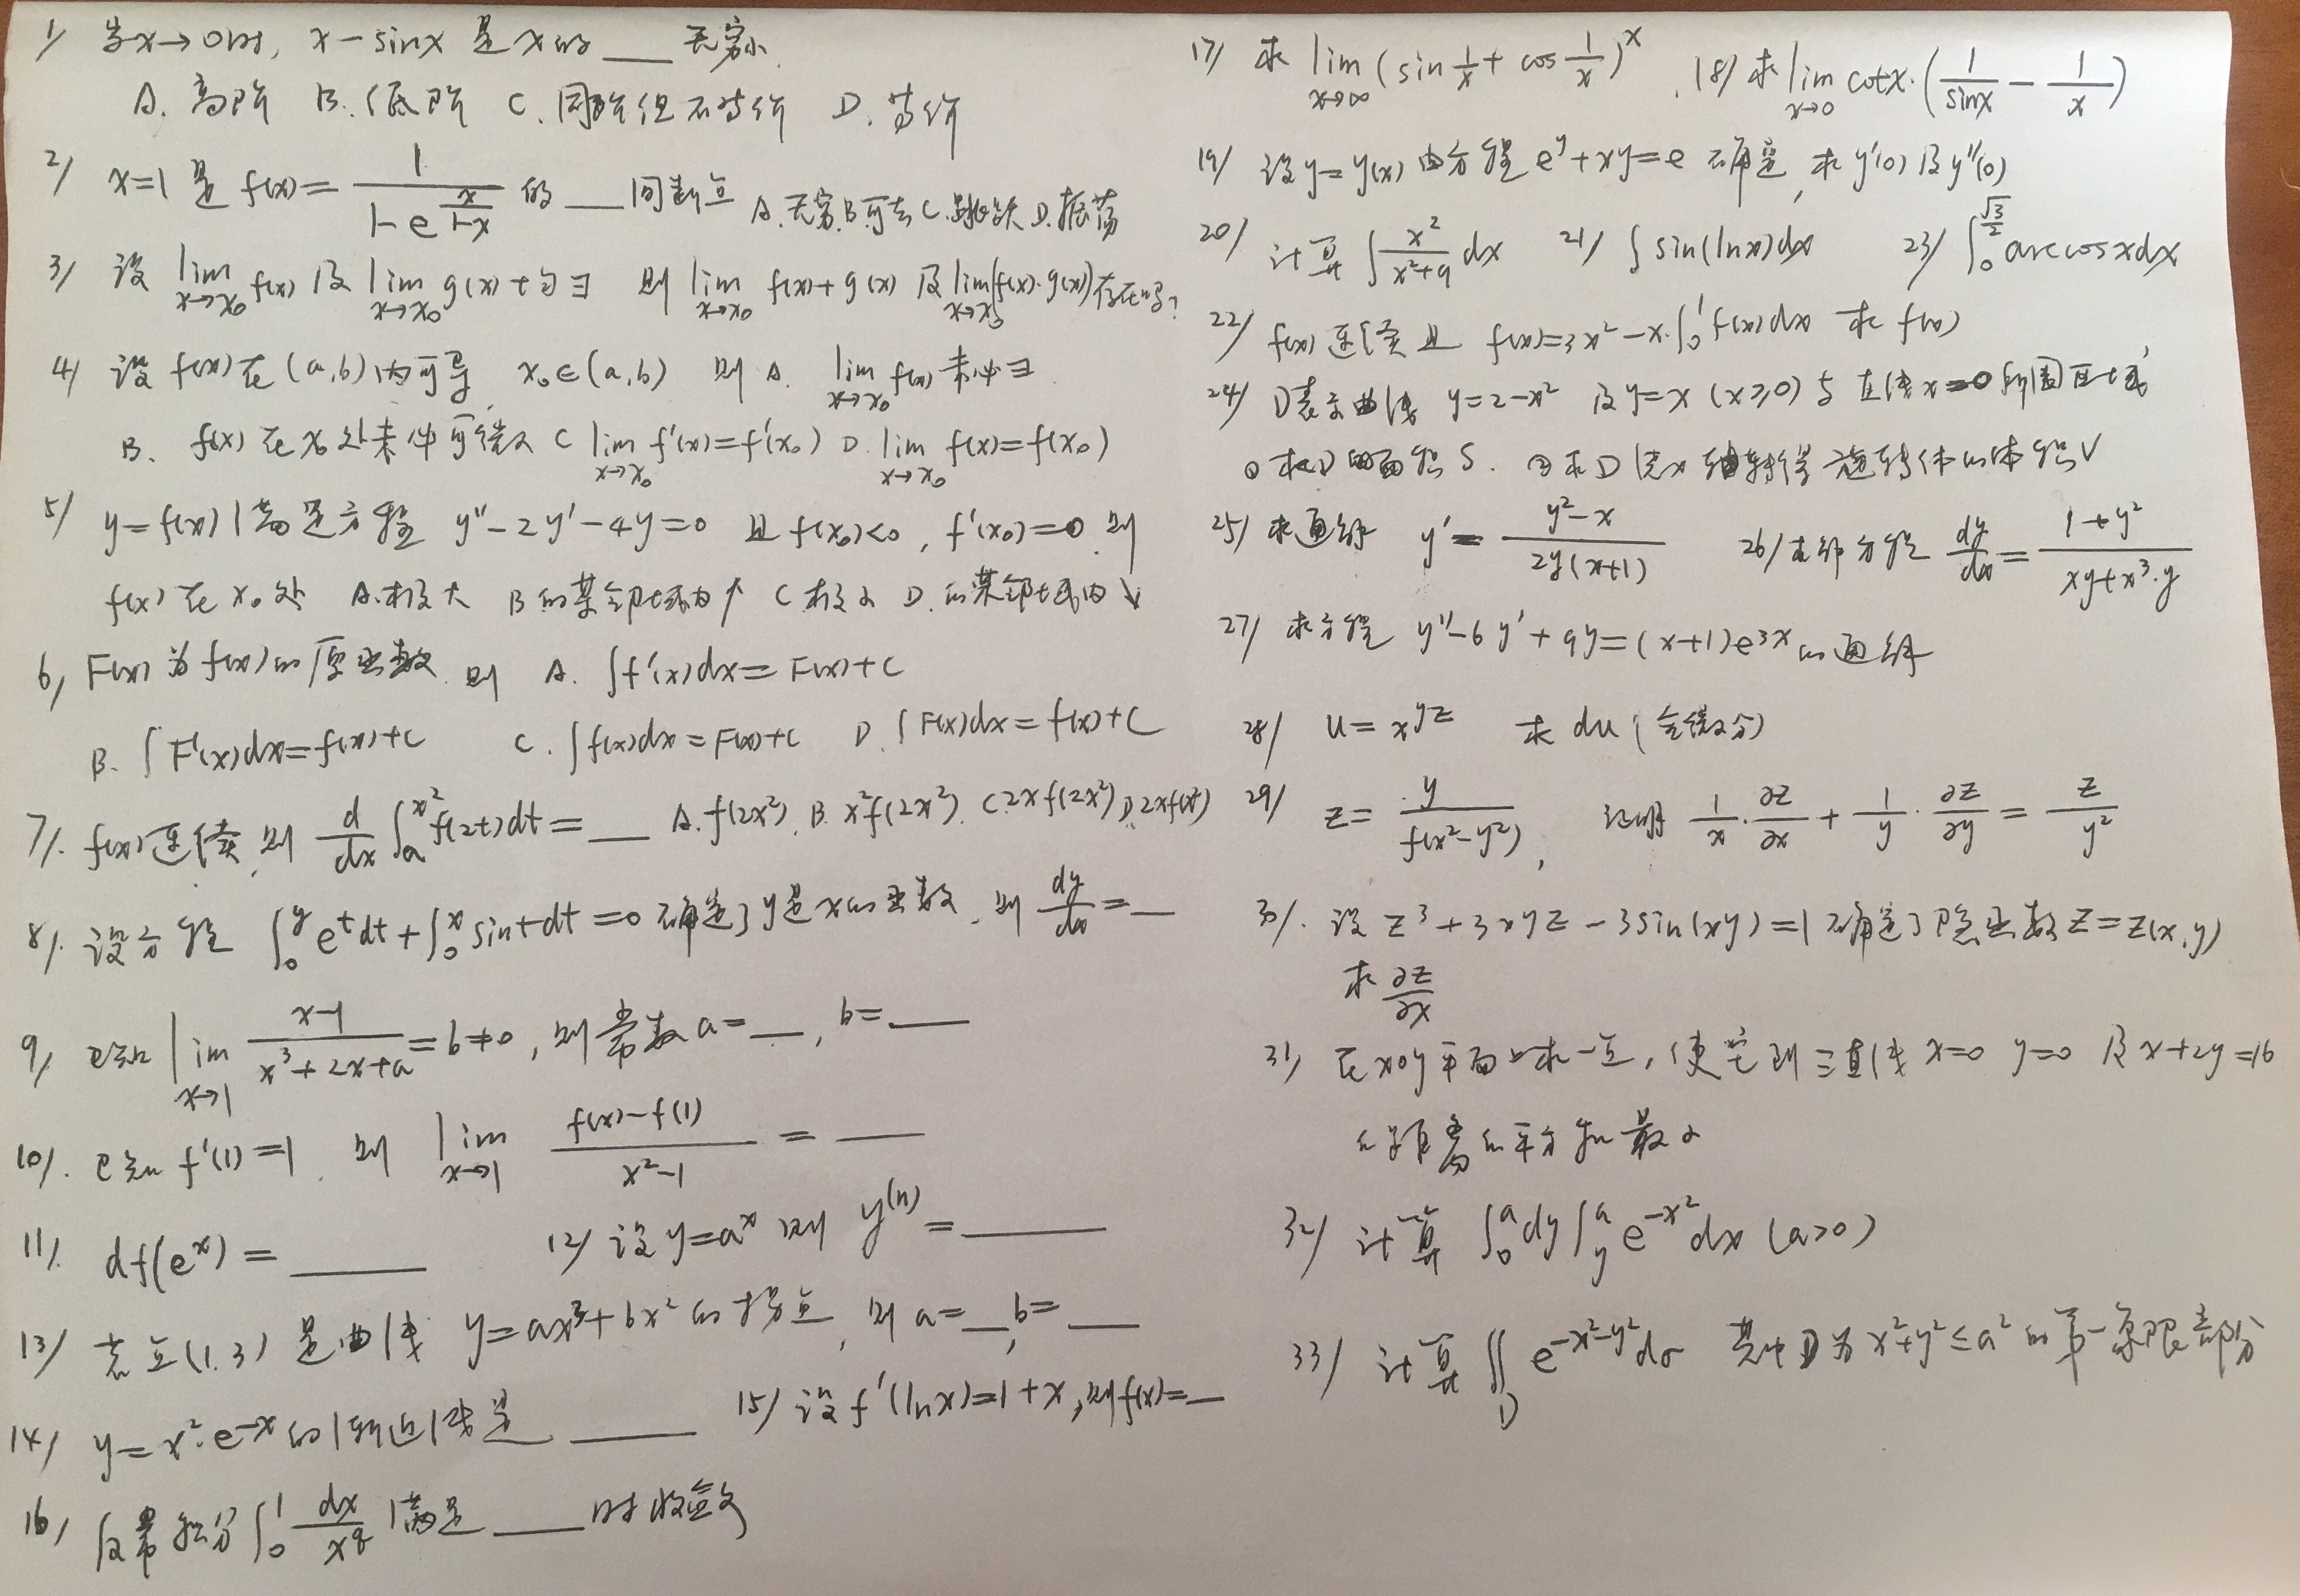 1) 当x→0时, x-sinx 是x的 ___ 无穷小.
A. 高阶 B. 低阶 C. 同阶但不等价 D. 等价
2) x=1 是 f(x)= 1/(1-e^(x/(1-x))) 的 ___ 间断点 A.无穷 B.可去 C.跳跃 D.振荡
3) 设 lim_{x→x₀} f(x) 及 lim_{x→x₀} g(x) 均∃ 则 lim_{x→x₀} f(x)+g(x) 及 lim_{x→x₀}(f(x)·g(x)) 存在吗?
4) 设 f(x) 在 (a,b) 内可导, x₀∈(a,b) 则 A. lim_{x→x₀} f(x) 未必∃
B. f(x) 在 x₀ 处未必可微 C lim_{x→x₀} f'(x)=f'(x₀) D. lim_{x→x₀} f(x)=f(x₀)
5) y=f(x) 满足方程 y''-2y'-4y=0 且 f(x₀)<0, f'(x₀)=0 则
f(x) 在 x₀ 处 A.极大 B 的某邻域内↑ C 极小 D. 的某邻域内↓
6) F(x) 为 f(x) 的原函数 则 A. ∫f'(x)dx=F(x)+C
B. ∫F'(x)dx=f(x)+C C. ∫f(x)dx=F(x)+C D. ∫F(x)dx=f(x)+C
7). f(x)连续, 则 d/dx ∫_a^{x²} f(2t)dt= ___ A.f(2x²). B. x²f(2x²). C.2xf(2x²) D.2xf(x²)
8). 设方程 ∫₀^y e^t dt+∫₀^x sint dt=0 确定了y是x的函数, 则 dy/dx= __
9) 已知 lim_{x→1} (x-1)/(x³+2x+a)=b≠0, 则常数 a= __, b= ___
10). 已知 f'(1)=1, 则 lim_{x→1} (f(x)-f(1))/(x²-1) = ___
11). df(e^x)= ______ 12) 设 y=a^x 则 y^(n)= ______
13) 若点(1.3) 是曲线 y=ax³+bx² 的拐点, 则 a= __, b= ___
14) y=x²·e^-x 的渐近线是 ______ 15) 设 f'(lnx)=1+x, 则f(x)= __
16) 反常积分 ∫₀¹ dx/x^q 满足 ____ 时收敛
17) 求 lim_{x→∞} (sin 1/x + cos 1/x)^x. 18) 求 lim_{x→0} cotx·(1/sinx - 1/x)
19) 设y=y(x) 由方程 e^y+xy=e 确定, 求 y'(0) 及 y''(0)
20) 计算 ∫ x²/(x²+9) dx 21) ∫ sin(lnx)dx 23) ∫₀^{√3/2} arccosxdx
22) f(x) 连续且 f(x)=3x²-x·∫₀¹ f(x)dx 求 f(x)
24) D表示曲线 y=2-x² 及 y=x (x≥0) 与 直线 x=0 所围区域
① 求D的面积 S. ② 求D绕x轴转得旋转体的体积V
25) 求通解 y'= (y²-x)/(2y(x+1)) 26) 求解方程 dy/dx = (1+y²)/(xy+x³·y)
27) 求方程 y''-6y'+9y=(x+1)e^{3x} 的通解
28) u=x^{yz} 求 du (全微分)
29) z= y/f(x²-y²), 证明 1/x·∂z/∂x + 1/y·∂z/∂y = z/y²
30). 设 z³+3xyz-3sin(xy)=1 确定了隐函数 z=z(x.y)
求 ∂z/∂x
31) 在xoy平面上求一点, 使它到三直线 x=0 y=0 及 x+2y=16
的距离的平方和最小
32) 计算 ∫₀^a dy∫_y^a e^{-x²}dx (a>0)
33) 计算 ∬_D e^{-x²-y²}dσ 其中D为 x²+y²≤a² 的第一象限部分